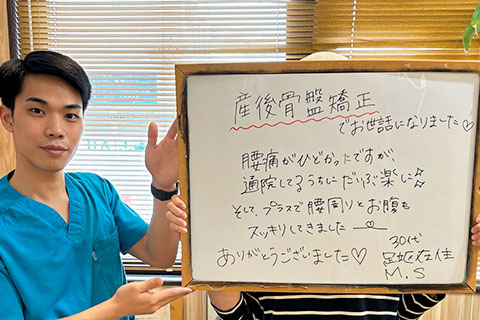 産後骨盤矯正
でお世話になりました♡
腰痛がひどかったですが、
通院してるうちにだいぶ楽に☆☆
そして、プラスで腰周りとお腹も
スッキリしてきました
ありがとうございました♡
30代
足立区在住
M.S